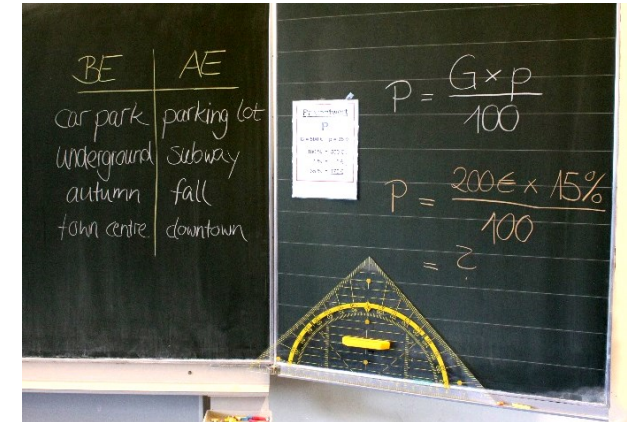 BE | AE
car park | parking lot
underground | subway
autumn | fall
town centre | downtown
P = G × p
100
P
P = 200€ × 15%
100
= ?